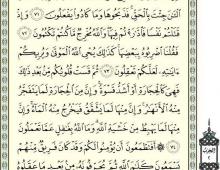 الْـَٔـٰنَ جِئْتَ بِالْحَقِّ فَذَبَحُوهَا وَمَا كَادُوا يَفْعَلُونَ ٧١
وَإِذْ قَتَلْتُمْ نَفْسًا فَادَّٰرَْٰٔتُمْ فِيهَا وَاللَّهُ مُخْرِجٌ مَا كُنْتُمْ تَكْتُمُونَ ٧٢
فَقُلْنَا اضْرِبُوهُ بِبَعْضِهَا كَذَٰلِكَ يُحْيِ اللَّهُ الْمَوْتَىٰ وَيُرِيكُمْ
ءَايَٰتِهِ لَعَلَّكُمْ تَعْقِلُونَ ٧٣ ثُمَّ قَسَتْ قُلُوبُكُمْ مِنْ بَعْدِ ذَٰلِكَ
فَهِيَ كَالْحِجَارَةِ أَوْ أَشَدُّ قَسْوَةً وَإِنَّ مِنَ الْحِجَارَةِ لَمَا يَتَفَجَّرُ
مِنْهُ الْأَنْهَٰرُ وَإِنَّ مِنْهَا لَمَا يَشَّقَّقُ فَيَخْرُجُ مِنْهُ الْمَاءُ وَإِنَّ
مِنْهَا لَمَا يَهْبِطُ مِنْ خَشْيَةِ اللَّهِ وَمَا اللَّهُ بِغَٰفِلٍ عَمَّا تَعْمَلُونَ
٧٤ أَفَتَطْمَعُونَ أَنْ يُؤْمِنُوا لَكُمْ وَقَدْ كَانَ فَرِيقٌ مِنْهُمْ
يَسْمَعُونَ كَلَٰمَ اللَّهِ ثُمَّ يُحَرِّفُونَهُ مِنْ بَعْدِ مَا عَقَلُوهُ